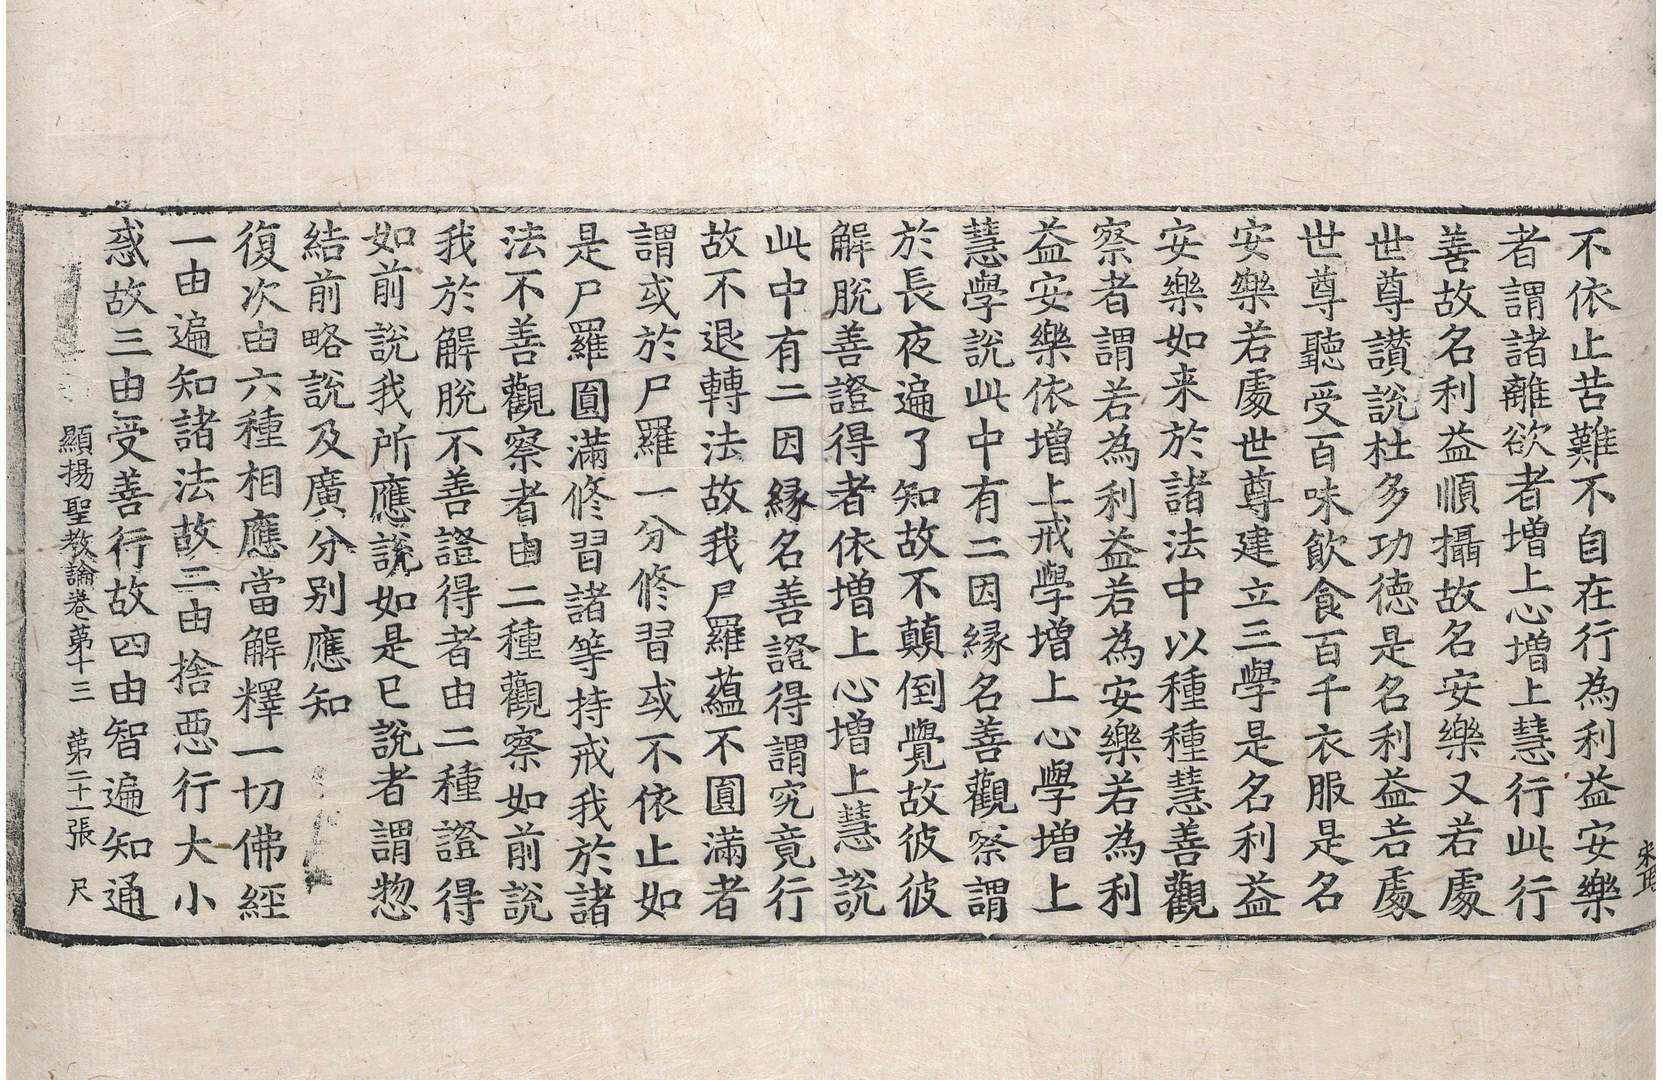 不依止苦難不自在行為利益安樂
者謂諸離欲者增上心增上慧行此行
善故名利益順攝故名安樂又若處
世尊讚說杜多功德是名利益若處
世尊聽受百味飲食百千衣服是名
安樂若處世尊建立三學是名利益
安樂如来於諸法中以種種慧善觀
察者謂若為利益若為安樂若為利
益安樂依增上戒學增上心學增上
慧學說此中有二因緣名善觀察謂
於長夜遍了知故不顛倒覺故彼彼
解脫善證得者依增上心增上慧說
此中有二因緣名善證得謂究竟行
故不退轉法故我尸羅蘊不圓滿者
謂或於尸羅一分修習或不依止如
是尸羅圓滿修習諸等持戒我於諸
法不善觀察者由二種觀察如前說
我於解脫不善證得者由二種證得
如前說我所應說如是已說者謂惣
結前略說及廣分別應知
復次由六種相應當解釋一切佛經
一由遍知諸法故二由捨惡行大小
惑故三由受善行故四由智遍知通
顯揚聖教論卷第十三 第二十一張 尺